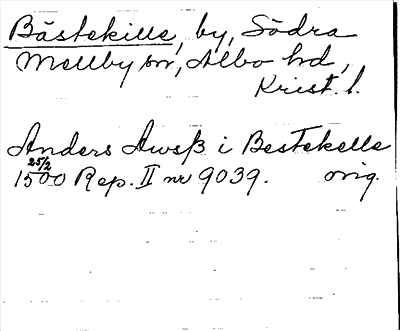 Bästekille, by, Södra
Mellby sn, Albo hd,
Krist. l.
Anders Awsß i Bestekelle
25/2
1500 Rep. II nr 9039. orig.